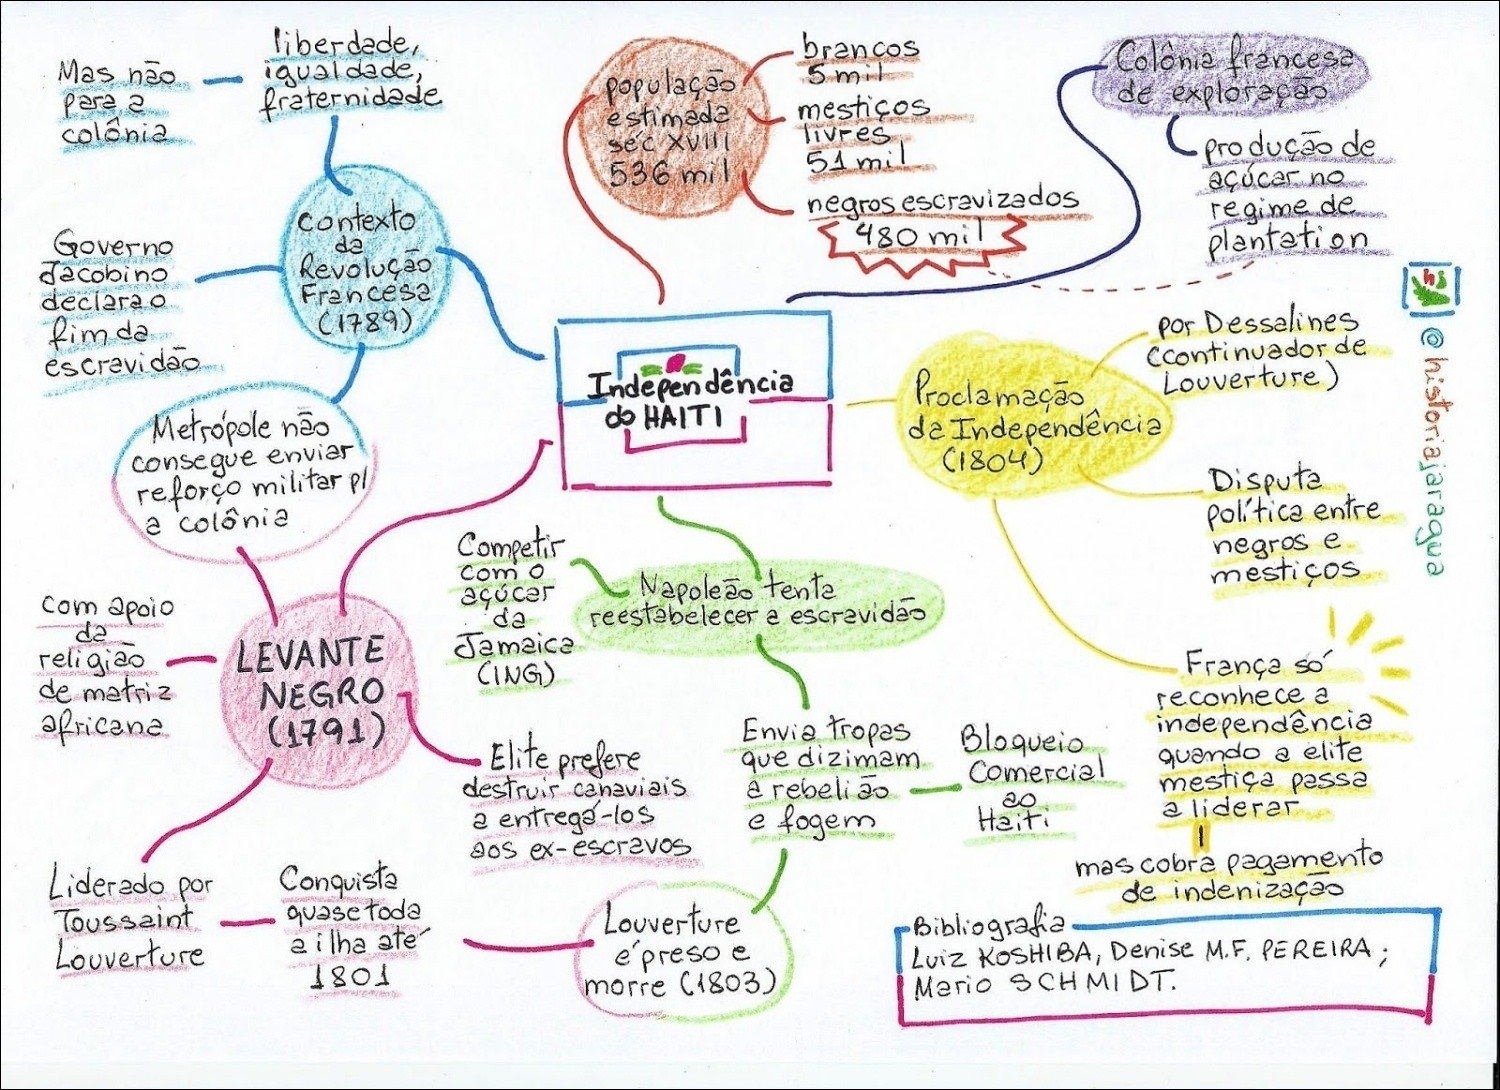 Mas não
para a
colônia
liberdade,
igualdade,
fraternidade
Contexto
da
Revolução
Francesa
(1789)
Governo
Jacobino
declara o
fim da
escravidão
Metrópole não
consegue enviar
reforço militar p/
a colônia
população
estimada
séc XVIII
536 mil
brancos
5 mil
mestiços
livres
51 mil
negros escravizados
480 mil
Colônia francesa
de exploração
produção de
açúcar no
regime de
plantation
Independência
do HAITI
Proclamação
da Independência
(1804)
por Dessalines
(continuador de
Louverture)
Disputa
política entre
negros e
mestiços
França só
reconhece a
independência
quando a elite
mestiça passa
a liderar
mas cobra pagamento
de indenização
hs
@historiajaragua
Competir
com o
açúcar
da
Jamaica
(ING)
Napoleão tenta
reestabelecer a escravidão
Envia tropas
que dizimam
a rebelião
e fogem
Bloqueio
Comercial
ao
Haiti
LEVANTE
NEGRO
(1791)
com apoio
da
religião
de matriz
africana
Elite prefere
destruir canaviais
a entregá-los
aos ex-escravos
Liderado por
Toussaint
Louverture
Conquista
quase toda
a ilha até
1801
Louverture
é preso e
morre (1803)
Bibliografia
Luiz KOSHIBA, Denise M.F. PEREIRA;
Mario SCHMIDT.